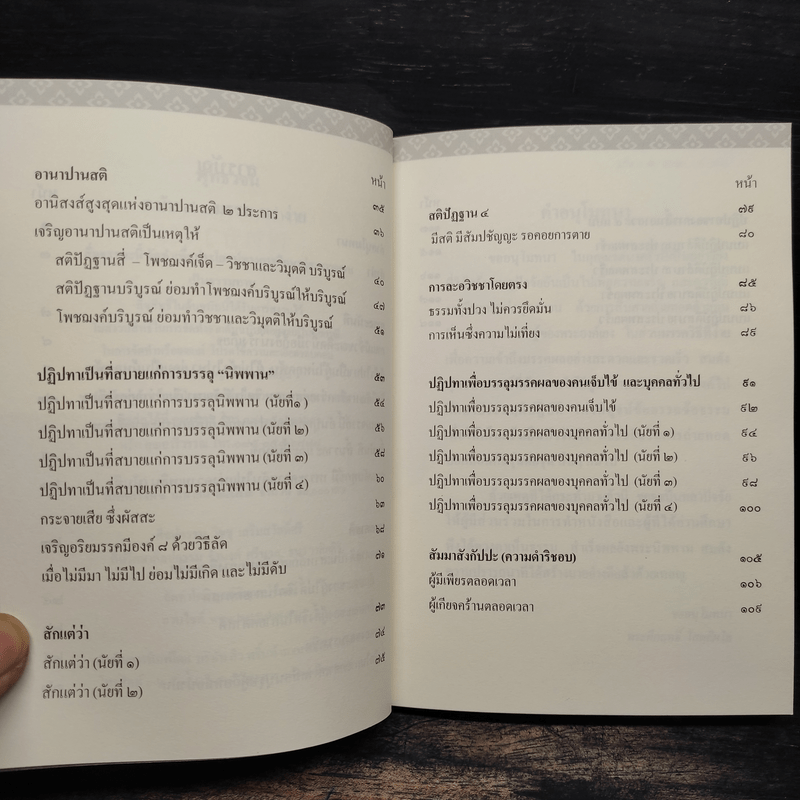 อานาปานสติ หน้า
อานิสงส์สูงสุดแห่งอานาปานสติ ๒ ประการ ๓๕
เจริญอานาปานสติเป็นเหตุให้ ๓๖
สติปัฏฐานสี่ – โพชฌงค์เจ็ด – วิชชาและวิมุตติ บริบูรณ์ ๔๐
สติปัฏฐานบริบูรณ์ ย่อมทำโพชฌงค์บริบูรณ์ให้บริบูรณ์ ๔๗
โพชฌงค์บริบูรณ์ ย่อมทำวิชชาและวิมุตติให้บริบูรณ์ ๕๑
ปฏิปทาเป็นที่สบายแก่การบรรลุ “นิพพาน” ๕๓
ปฏิปทาเป็นที่สบายแก่การบรรลุนิพพาน (นัยที่๑ ) ๕๔
ปฏิปทาเป็นที่สบายแก่การบรรลุนิพพาน (นัยที่ ๒) ๕๖
ปฏิปทาเป็นที่สบายแก่การบรรลุนิพพาน (นัยที่ ๓) ๕๘
ปฏิปทาเป็นที่สบายแก่การบรรลุนิพพาน (นัยที่ ๔) ๖๐
กระจายเสีย ซึ่งผัสสะ ๖๓
เจริญอริยมรรคมีองค์ ๘ ด้วยวิธีลัด ๖๘
เมื่อไม่มีมา ไม่มีไป ย่อมไม่มีเกิด และไม่มีดับ ๗๑
สักแต่ว่า ๗๓
สักแต่ว่า (นัยที่ ๑) ๗๔
สักแต่ว่า (นัยที่ ๒) ๗๕
หน้า
สติปัฏฐาน ๔ ๗๙
มีสติ มีสัมปชัญญะ รอคอยการตาย ๘๐
การละอวิชชาโดยตรง ๘๕
ธรรมทั้งปวง ไม่ควรยึดมั่น ๘๖
การเห็นซึ่งความไม่เที่ยง ๘๙
ปฏิปทาเพื่อบรรลุมรรคผลของคนเจ็บไข้ และบุคคลทั่วไป ๙๑
ปฏิปทาเพื่อบรรลุมรรคผลของคนเจ็บไข้ ๙๒
ปฏิปทาเพื่อบรรลุมรรคผลของบุคคลทั่วไป (นัยที่ ๑) ๙๔
ปฏิปทาเพื่อบรรลุมรรคผลของบุคคลทั่วไป (นัยที่ ๒) ๙๖
ปฏิปทาเพื่อบรรลุมรรคผลของบุคคลทั่วไป (นัยที่ ๓) ๙๘
ปฏิปทาเพื่อบรรลุมรรคผลของบุคคลทั่วไป (นัยที่ ๔) ๑๐๐
สัมมาสังกัปปะ (ความดำริชอบ) ๑๐๕
ผู้มีเพียรตลอดเวลา ๑๐๖
ผู้เกียจคร้านตลอดเวลา ๑๐๙